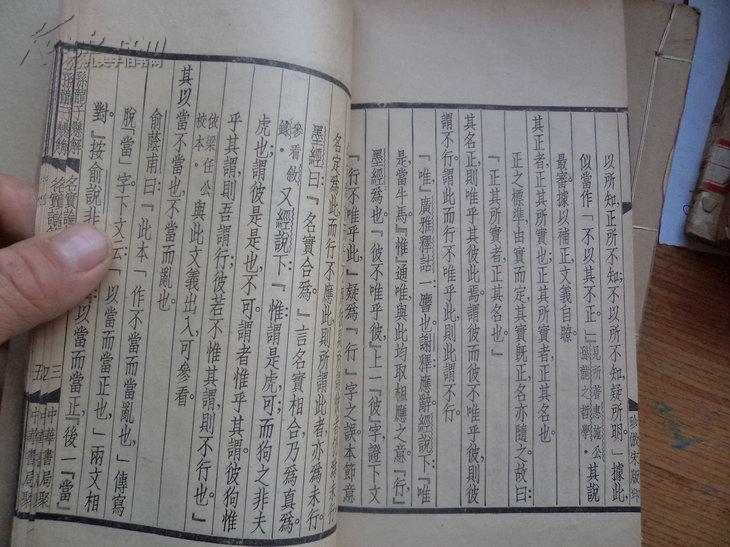 以所知正所不知不以所不知疑所明』據此、
似當作『不以其不正。』見所著惠施公孫龍之哲學。其說
最審據以補正文義自瞭。
其正者正其所實也正其所實者正其名也。
正之標準由實而定其實既正名亦隨之故曰:
『正其所實者正其名也。』
其名正則唯乎其彼此焉謂彼而彼不唯乎彼則彼
謂不行謂此而行不唯乎此則此謂不行。
『唯』廣雅釋詁一譍也謝釋應辭經說下『唯
是當牛馬』『惟』通唯與此均取相應之意。『行』
墨經爲也『彼不唯乎彼』上一『彼』字證下文
『行不唯乎此』疑爲『行』字之誤本節意
名定爲此而行不應此則所謂此者亦爲未行。
墨經曰『名實合爲』言名實相合乃爲真爲
參看敘錄。又經說下:『惟:謂是虎可;而狗之非夫
虎也;謂彼是是也不可。謂者惟乎其謂彼狗惟
乎其謂則吾謂行彼若不惟其謂則不行也』
依梁任公校本。與此文義出入可參看。
其以當不當也不當而亂也。
俞蔭甫曰『此本「作不當而當亂也」傳寫
脫「當」字下文云「以當而當正也」兩文相
對。』按俞說非
以當而當正』後一『當』
公孫龍子懸解
名實論
中華書局聚
珍倣宋版印